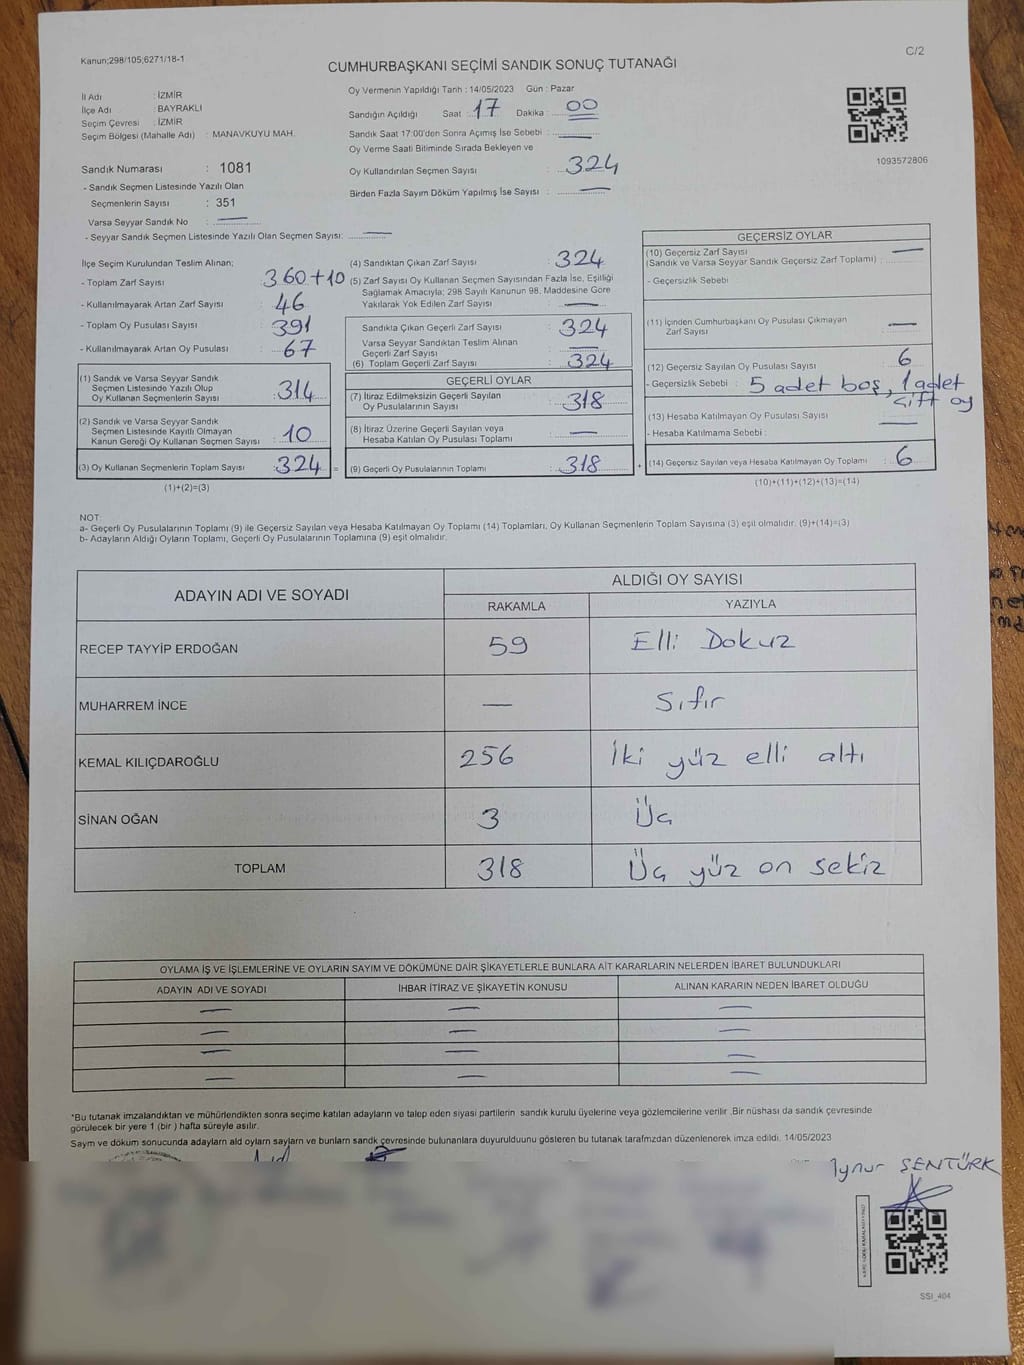 Kanun;298/105;6271/18-1
C/2
CUMHURBAŞKANI SEÇİMİ SANDIK SONUÇ TUTANAĞI
İl Adı : İZMİR
İlçe Adı : BAYRAKLI
Seçim Çevresi : İZMİR
Seçim Bölgesi (Mahalle Adı) : MANAVKUYU MAH.
Sandık Numarası : 1081
- Sandık Seçmen Listesinde Yazılı Olan
Seçmenlerin Sayısı : 351
Varsa Seyyar Sandık No : —
- Seyyar Sandık Seçmen Listesinde Yazılı Olan Seçmen Sayısı: —
Oy Vermenin Yapıldığı Tarih : 14/05/2023 Gün : Pazar
Sandığın Açıldığı Saat : 17 Dakika : 00
Sandık Saat 17:00'den Sonra Açımış İse Sebebi : —
Oy Verme Saati Bitiminde Sırada Bekleyen ve
Oy Kullandırılan Seçmen Sayısı : 324
Birden Fazla Sayım Döküm Yapılmış İse Sayısı : —
1093572806
İlçe Seçim Kurulundan Teslim Alınan;
- Toplam Zarf Sayısı : 360+10
- Kullanılmayarak Artan Zarf Sayısı : 46
- Toplam Oy Pusulası Sayısı : 391
- Kullanılmayarak Artan Oy Pusulası : 67
(1) Sandık ve Varsa Seyyar Sandık
Seçmen Listesinde Yazılı Olup
Oy Kullanan Seçmenlerin Sayısı : 314
(2) Sandık ve Varsa Seyyar Sandık
Seçmen Listesinde Kayıtlı Olmayan
Kanun Gereği Oy Kullanan Seçmen Sayısı : 10
(3) Oy Kullanan Seçmenlerin Toplam Sayısı : 324 =
(1)+(2)=(3)
(4) Sandıktan Çıkan Zarf Sayısı : 324
(5) Zarf Sayısı Oy Kullanan Seçmen Sayısından Fazla İse, Eşitliği
Sağlamak Amacıyla; 298 Sayılı Kanunun 98. Maddesine Göre
Yakılarak Yok Edilen Zarf Sayısı : —
Sandıkla Çıkan Geçerli Zarf Sayısı : 324
Varsa Seyyar Sandıktan Teslim Alınan
Geçerli Zarf Sayısı : —
(6) Toplam Geçerli Zarf Sayısı : 324
GEÇERLİ OYLAR
(7) İtiraz Edilmeksizin Geçerli Sayılan
Oy Pusulalarının Sayısı : 318
(8) İtiraz Üzerine Geçerli Sayılan veya
Hesaba Katılan Oy Pusulası Toplamı : —
(9) Geçerli Oy Pusulalarının Toplamı : 318 +
GEÇERSİZ OYLAR
(10) Geçersiz Zarf Sayısı
(Sandık ve Varsa Seyyar Sandık Geçersiz Zarf Toplamı) : —
- Geçersizlik Sebebi
(11) İçinden Cumhurbaşkanı Oy Pusulası Çıkmayan
Zarf Sayısı —
(12) Geçersiz Sayılan Oy Pusulası Sayısı : 6
- Geçersizlik Sebebi : 5 adet boş, 1 adet
çift oy
(13) Hesaba Katılmayan Oy Pusulası Sayısı : —
- Hesaba Katılmama Sebebi :
(14) Geçersiz Sayılan veya Hesaba Katılmayan Oy Toplamı : 6
(10)+(11)+(12)+(13)=(14)
NOT:
a- Geçerli Oy Pusulalarının Toplamı (9) ile Geçersiz Sayılan veya Hesaba Katılmayan Oy Toplamı (14) Toplamları, Oy Kullanan Seçmenlerin Toplam Sayısına (3) eşit olmalıdır. (9)+(14)=(3)
b- Adayların Aldığı Oyların Toplamı, Geçerli Oy Pusulalarının Toplamına (9) eşit olmalıdır.
ADAYIN ADI VE SOYADI
ALDIĞI OY SAYISI
RAKAMLA YAZIYLA
RECEP TAYYİP ERDOĞAN 59 Elli Dokuz
MUHARREM İNCE — Sıfır
KEMAL KILIÇDAROĞLU 256 İki yüz elli altı
SİNAN OĞAN 3 Üç
TOPLAM 318 Üç yüz on sekiz
OYLAMA İŞ VE İŞLEMLERİNE VE OYLARIN SAYIM VE DÖKÜMÜNE DAİR ŞİKAYETLERLE BUNLARA AİT KARARLARIN NELERDEN İBARET BULUNDUKLARI
ADAYIN ADI VE SOYADI İHBAR İTİRAZ VE ŞİKAYETİN KONUSU ALINAN KARARIN NEDEN İBARET OLDUĞU
— — —
— — —
— — —
— — —
*Bu tutanak imzalandıktan ve mühürlendikten sonra seçime katılan adayların ve talep eden siyasi partilerin sandık kurulu üyelerine veya gözlemcilerine verilir .Bir nüshası da sandık çevresinde
görülecek bir yere 1 (bir ) hafta süreyle asılır.
Saym ve döküm sonucunda adaylarn ald oylarn saylarn ve bunlarn sandk çevresinde bulunanlara duyurulduunu gösteren bu tutanak tarafmzdan düzenlenerek imza edildi. 14/05/2023
Aynur ŞENTÜRK
SSI_404